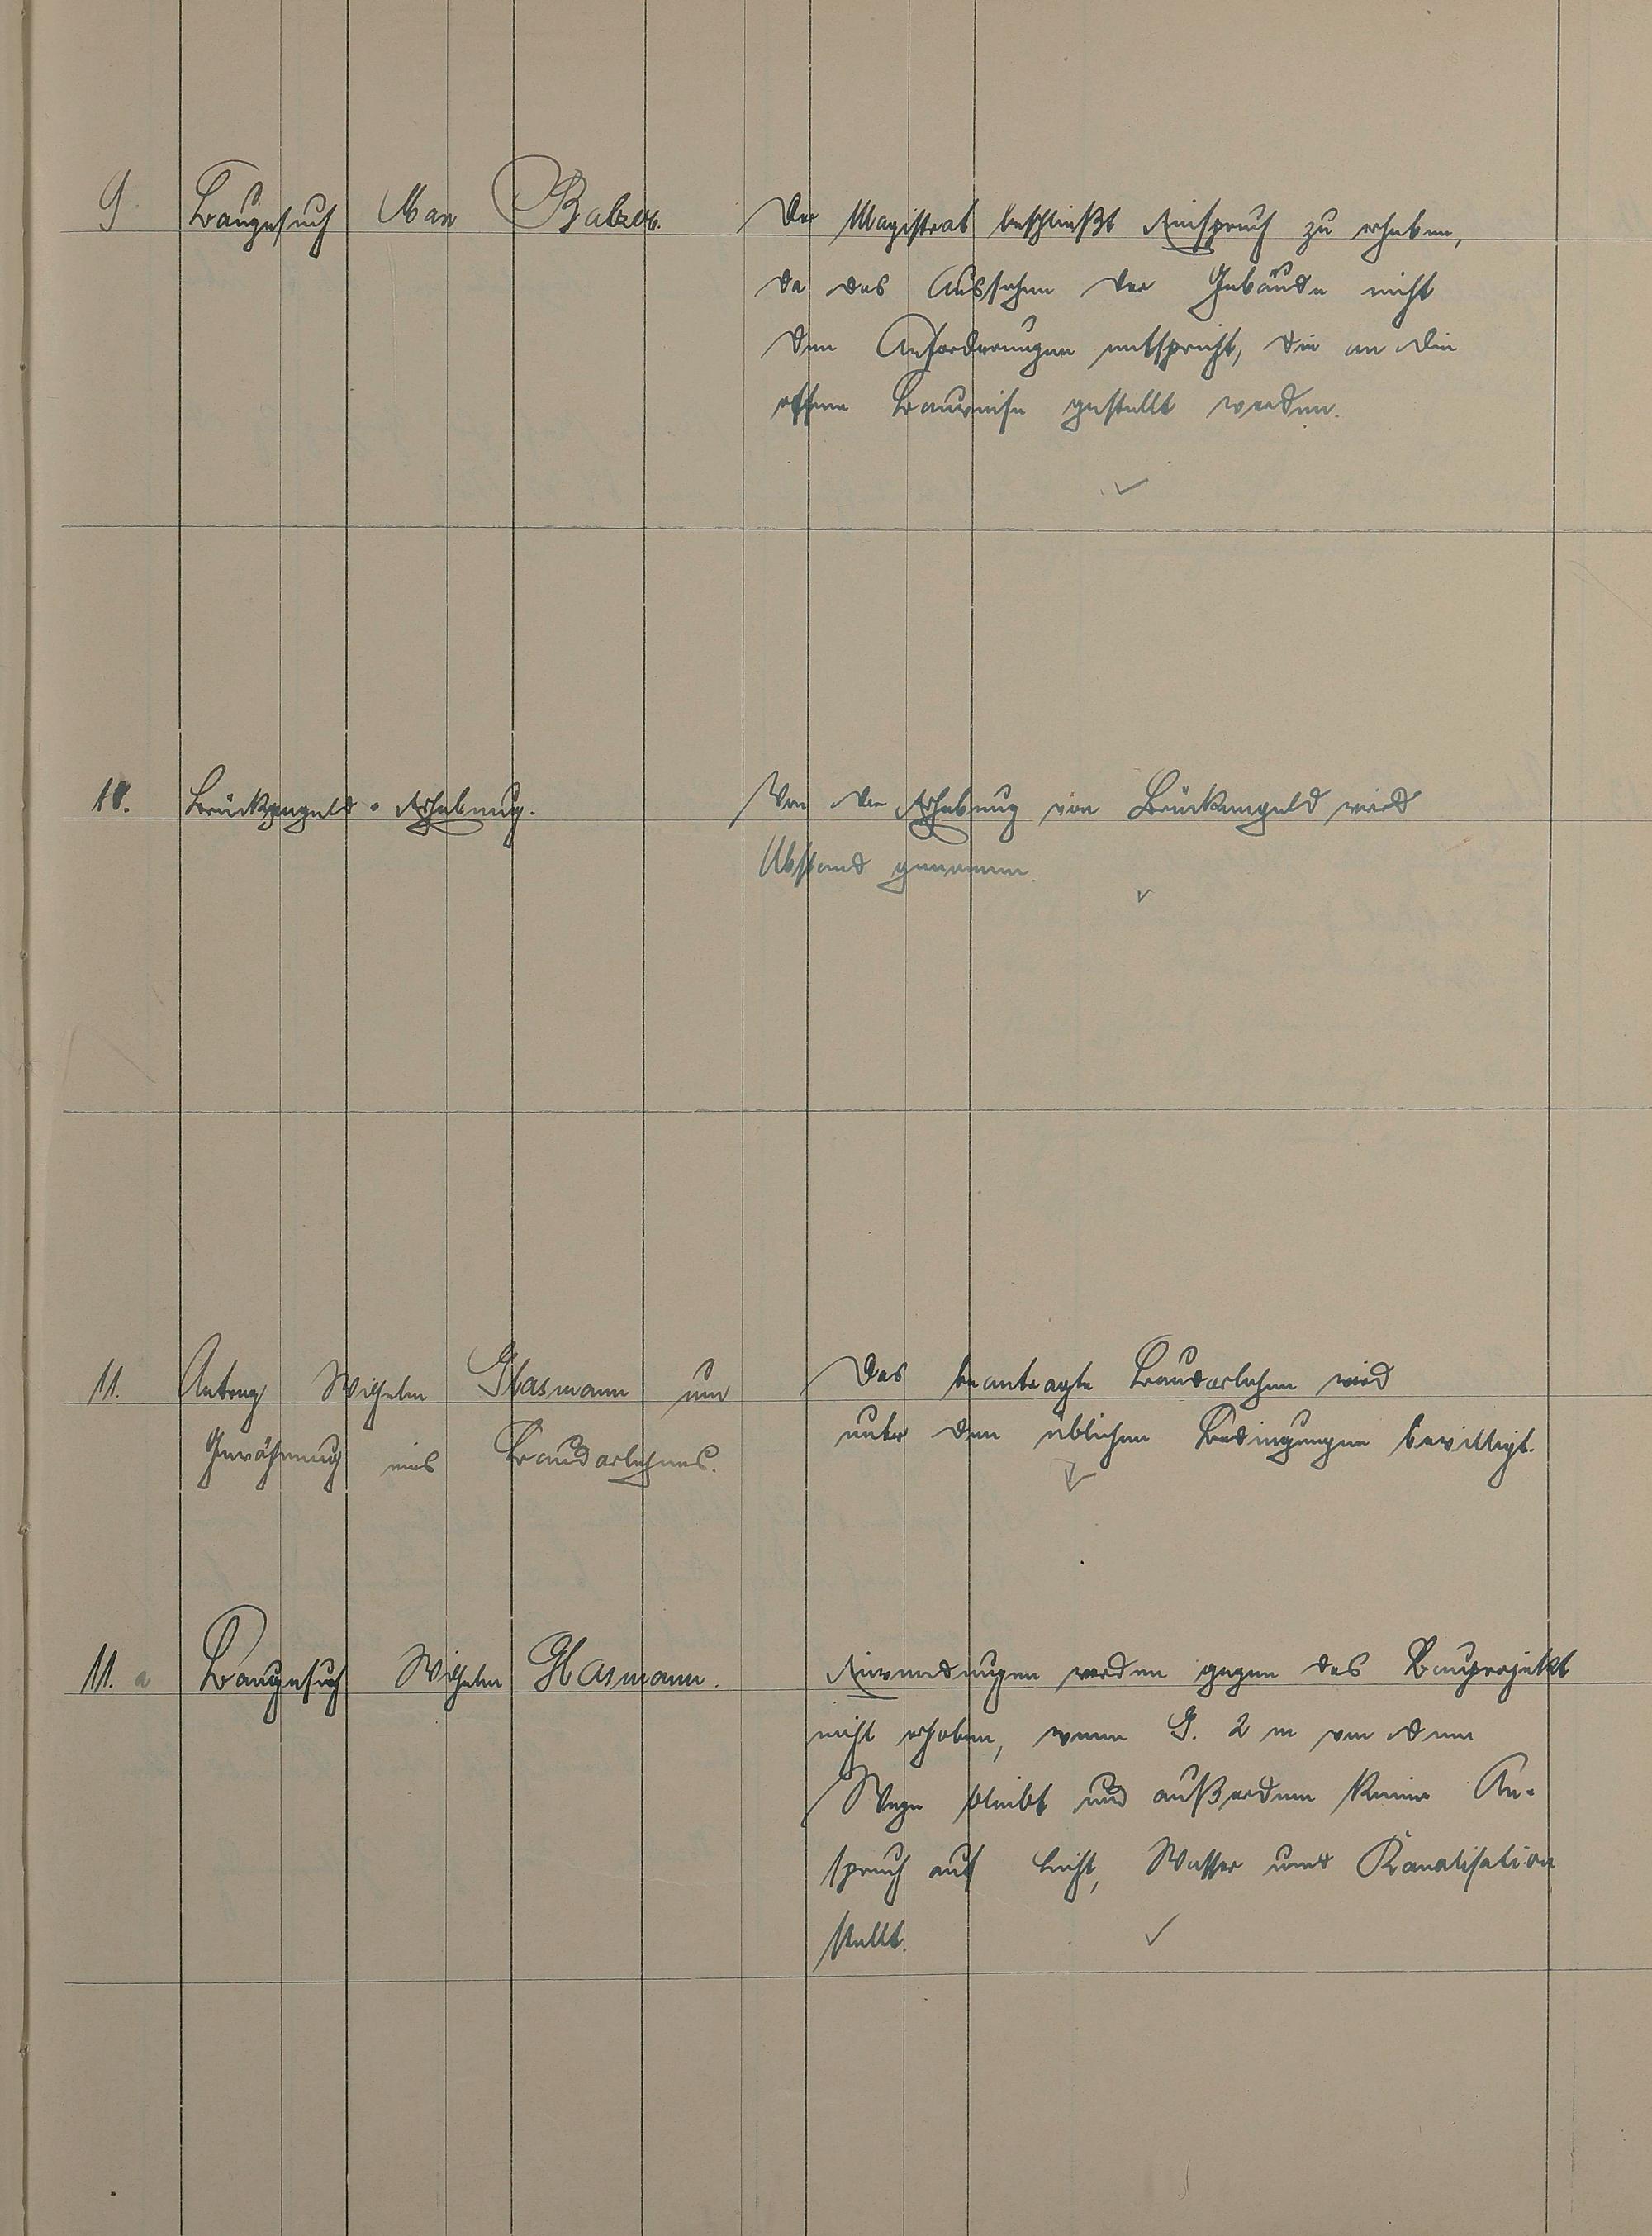 9. Baugesuch Max Balzer.
Der Magistrat beschließt Einspruch zu erheben,
da das Aussehen der Gebäude nicht
den Anforderungen entspricht, die an die
offene Bauweise gestellt werden.
10. Brückengeld-Erhebung.
Von der Erhebung von Brückengeld wird
Abstand genommen.
11. Antrag Wilhelm Glasmann um
Gewährung eines Baudarlehnes.
Das beantragte Baudarlehen wird
unter den üblichen Bedingungen bewilligt.
11. a Baugesuch Wilhelm Glasmann.
Einwendungen werden gegen das Bauprojekt
nicht erhoben, wenn G. 2 m von dem
Wege bleibt und außerdem keinen An-
spruch auf Licht, Wasser und Kanalisation
stellt.